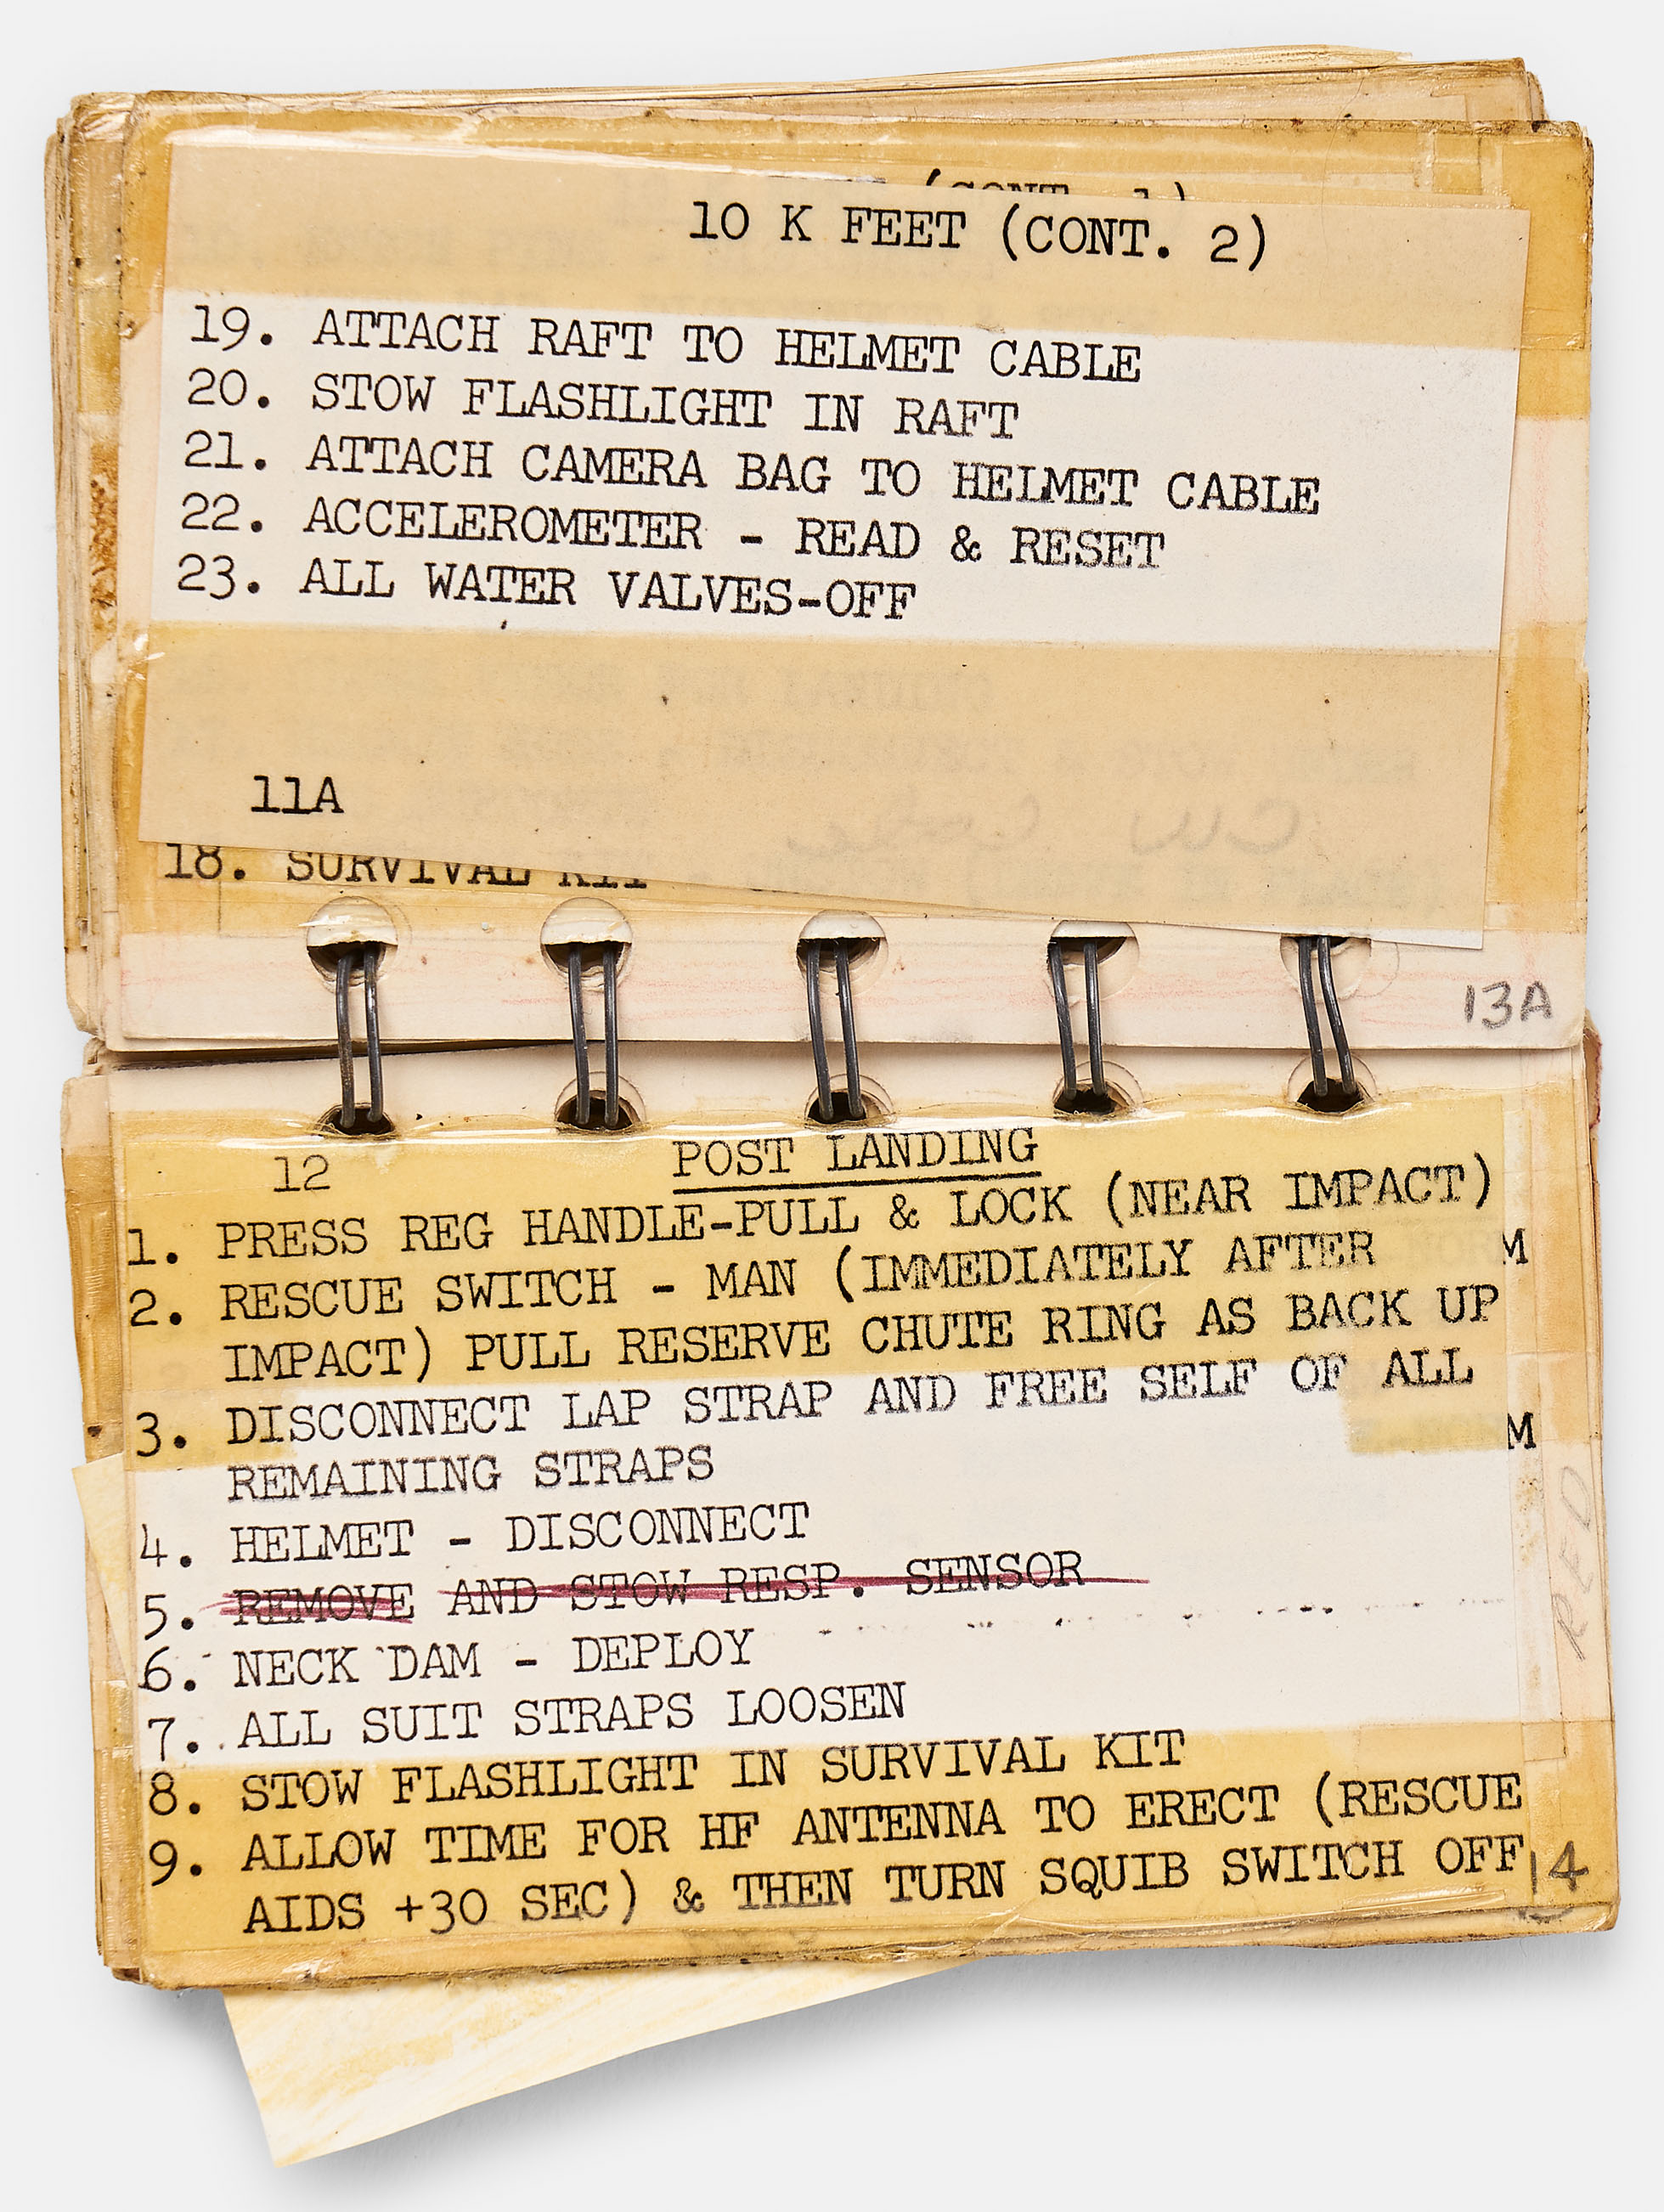 (CONT. 1)
10 K FEET (CONT. 2)
19. ATTACH RAFT TO HELMET CABLE
20. STOW FLASHLIGHT IN RAFT
21. ATTACH CAMERA BAG TO HELMET CABLE
22. ACCELEROMETER - READ & RESET
23. ALL WATER VALVES-OFF
11A
18. SURVIVAL KIT
13A
12
POST LANDING
1. PRESS REG HANDLE-PULL & LOCK (NEAR IMPACT)
2. RESCUE SWITCH - MAN (IMMEDIATELY AFTER M
IMPACT) PULL RESERVE CHUTE RING AS BACK UP
3. DISCONNECT LAP STRAP AND FREE SELF OF ALL
M
REMAINING STRAPS
4. HELMET - DISCONNECT
5. REMOVE AND STOW RESP. SENSOR
6. NECK DAM - DEPLOY
7. ALL SUIT STRAPS LOOSEN
8. STOW FLASHLIGHT IN SURVIVAL KIT
9. ALLOW TIME FOR HF ANTENNA TO ERECT (RESCUE
AIDS +30 SEC) & THEN TURN SQUIB SWITCH OFF
14
RED